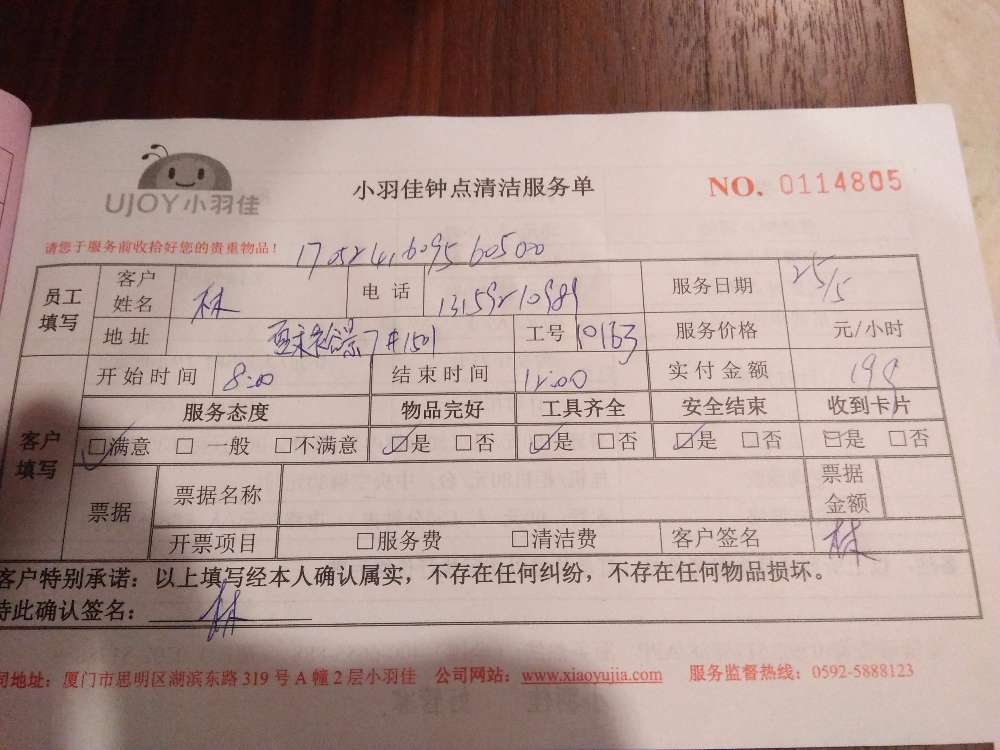 UJOY小羽佳
小羽佳钟点清洁服务单
NO. 0114805
请您于服务前收拾好您的贵重物品！
员工填写 客户姓名 林 电话 13159210989 服务日期 25/5
地址 7#1501 工号 10163 服务价格 元/小时
开始时间 8:00 结束时间 12:00 实付金额
客户填写 服务态度 物品完好 工具齐全 安全结束 收到卡片
☑满意 □ 一般 □不满意 ☑是 □否 ☑是 □否 ☑是 □否 □是 □否
票据 票据名称 票据金额
开票项目 □服务费 □清洁费 客户签名 林
客户特别承诺：以上填写经本人确认属实，不存在任何纠纷，不存在任何物品损坏。
特此确认签名： 林
司地址：厦门市思明区湖滨东路 319 号 A 幢 2 层小羽佳 公司网站：www.xiaoyujia.com 服务监督热线：0592-5888123